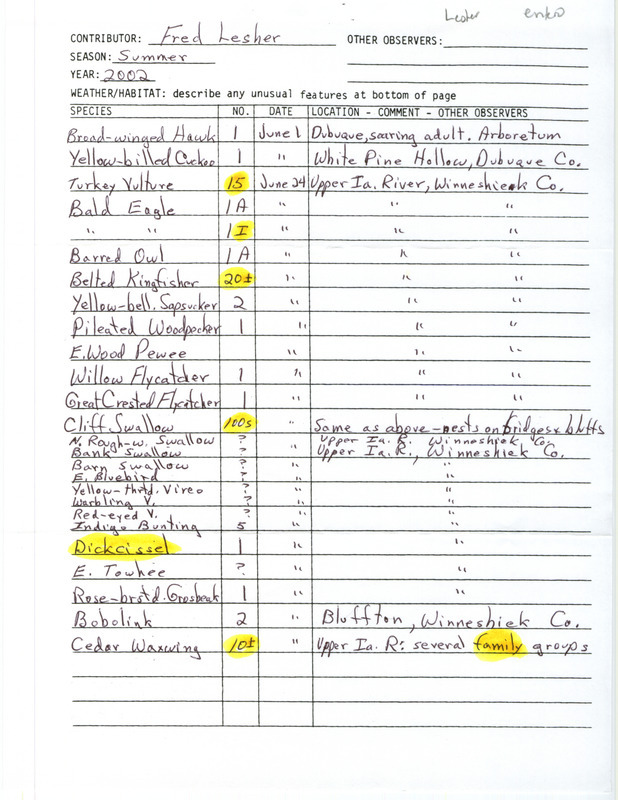 Lesher enko
CONTRIBUTOR: Fred Lesher OTHER OBSERVERS:
SEASON: Summer
YEAR: 2002
WEATHER/HABITAT: describe any unusual features at bottom of page
SPECIES NO. DATE LOCATION - COMMENT - OTHER OBSERVERS
Broad-winged Hawk 1 June 1 Dubuque, soaring adult. Arboretum
Yellow-billed Cuckoo 1 " White Pine Hollow, Dubuque Co.
Turkey Vulture 15 June 24 Upper Ia. River, Winneshiek Co.
Bald Eagle 1A " " "
" " 1I " " "
Barred Owl 1A " "
Belted Kingfisher 20± " " "
Yellow-bell. Sapsucker 2 " " "
Pileated Woodpecker 1 " " "
E. Wood Pewee " " "
Willow Flycatcher 1 " " "
Great Crested Flycatcher 1 " " "
Cliff Swallow 100s " Same as above - nests on bridges & bluffs
N. Rough-w. Swallow ? Upper Ia. R. Winneshiek Co.
Bank Swallow ? " Upper Ia. R., Winneshiek Co.
Barn Swallow ? " "
E. Bluebird ? " "
Yellow-thrtd. Vireo ? " "
Warbling V. ? " "
Red-eyed V. ? " "
Indigo Bunting 5 " "
Dickcissel 1 " "
E. Towhee ? " "
Rose-brstd. Grosbeak 1 " "
Bobolink 2 " Bluffton, Winneshiek Co.
Cedar Waxwing 10± " Upper Ia. R: several family groups